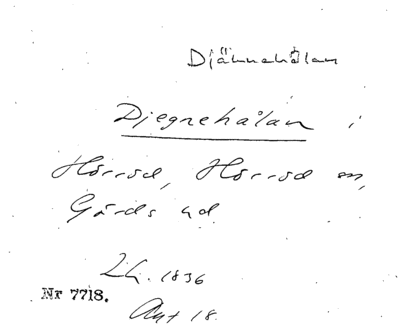 Djäknehålan
Djegnehålan i
Hörröd, Hörröd sn,
Gärds hd
Lh. 1836
Nr 7718.
Akt 18.